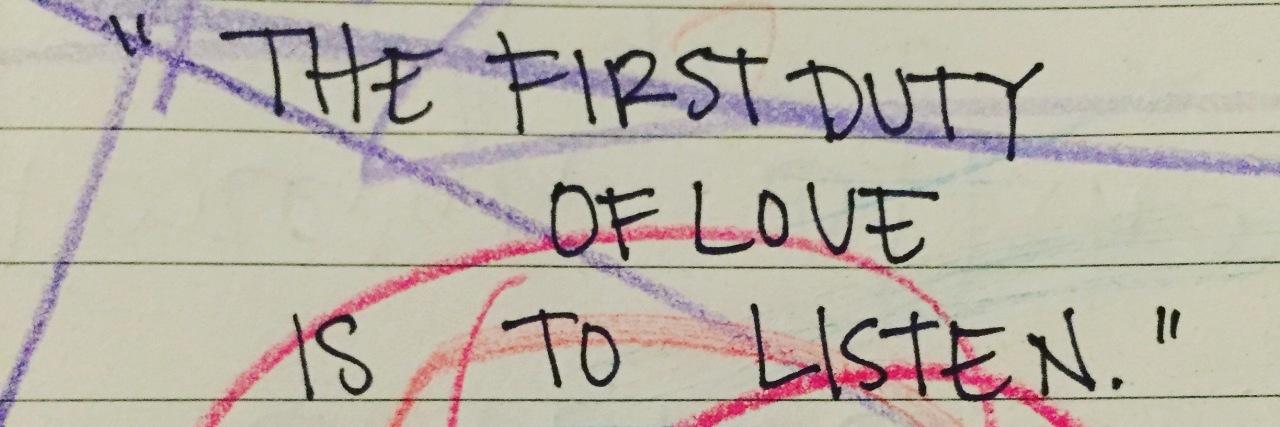 "THE FIRST DUTY
OF LOVE
IS TO LISTEN."